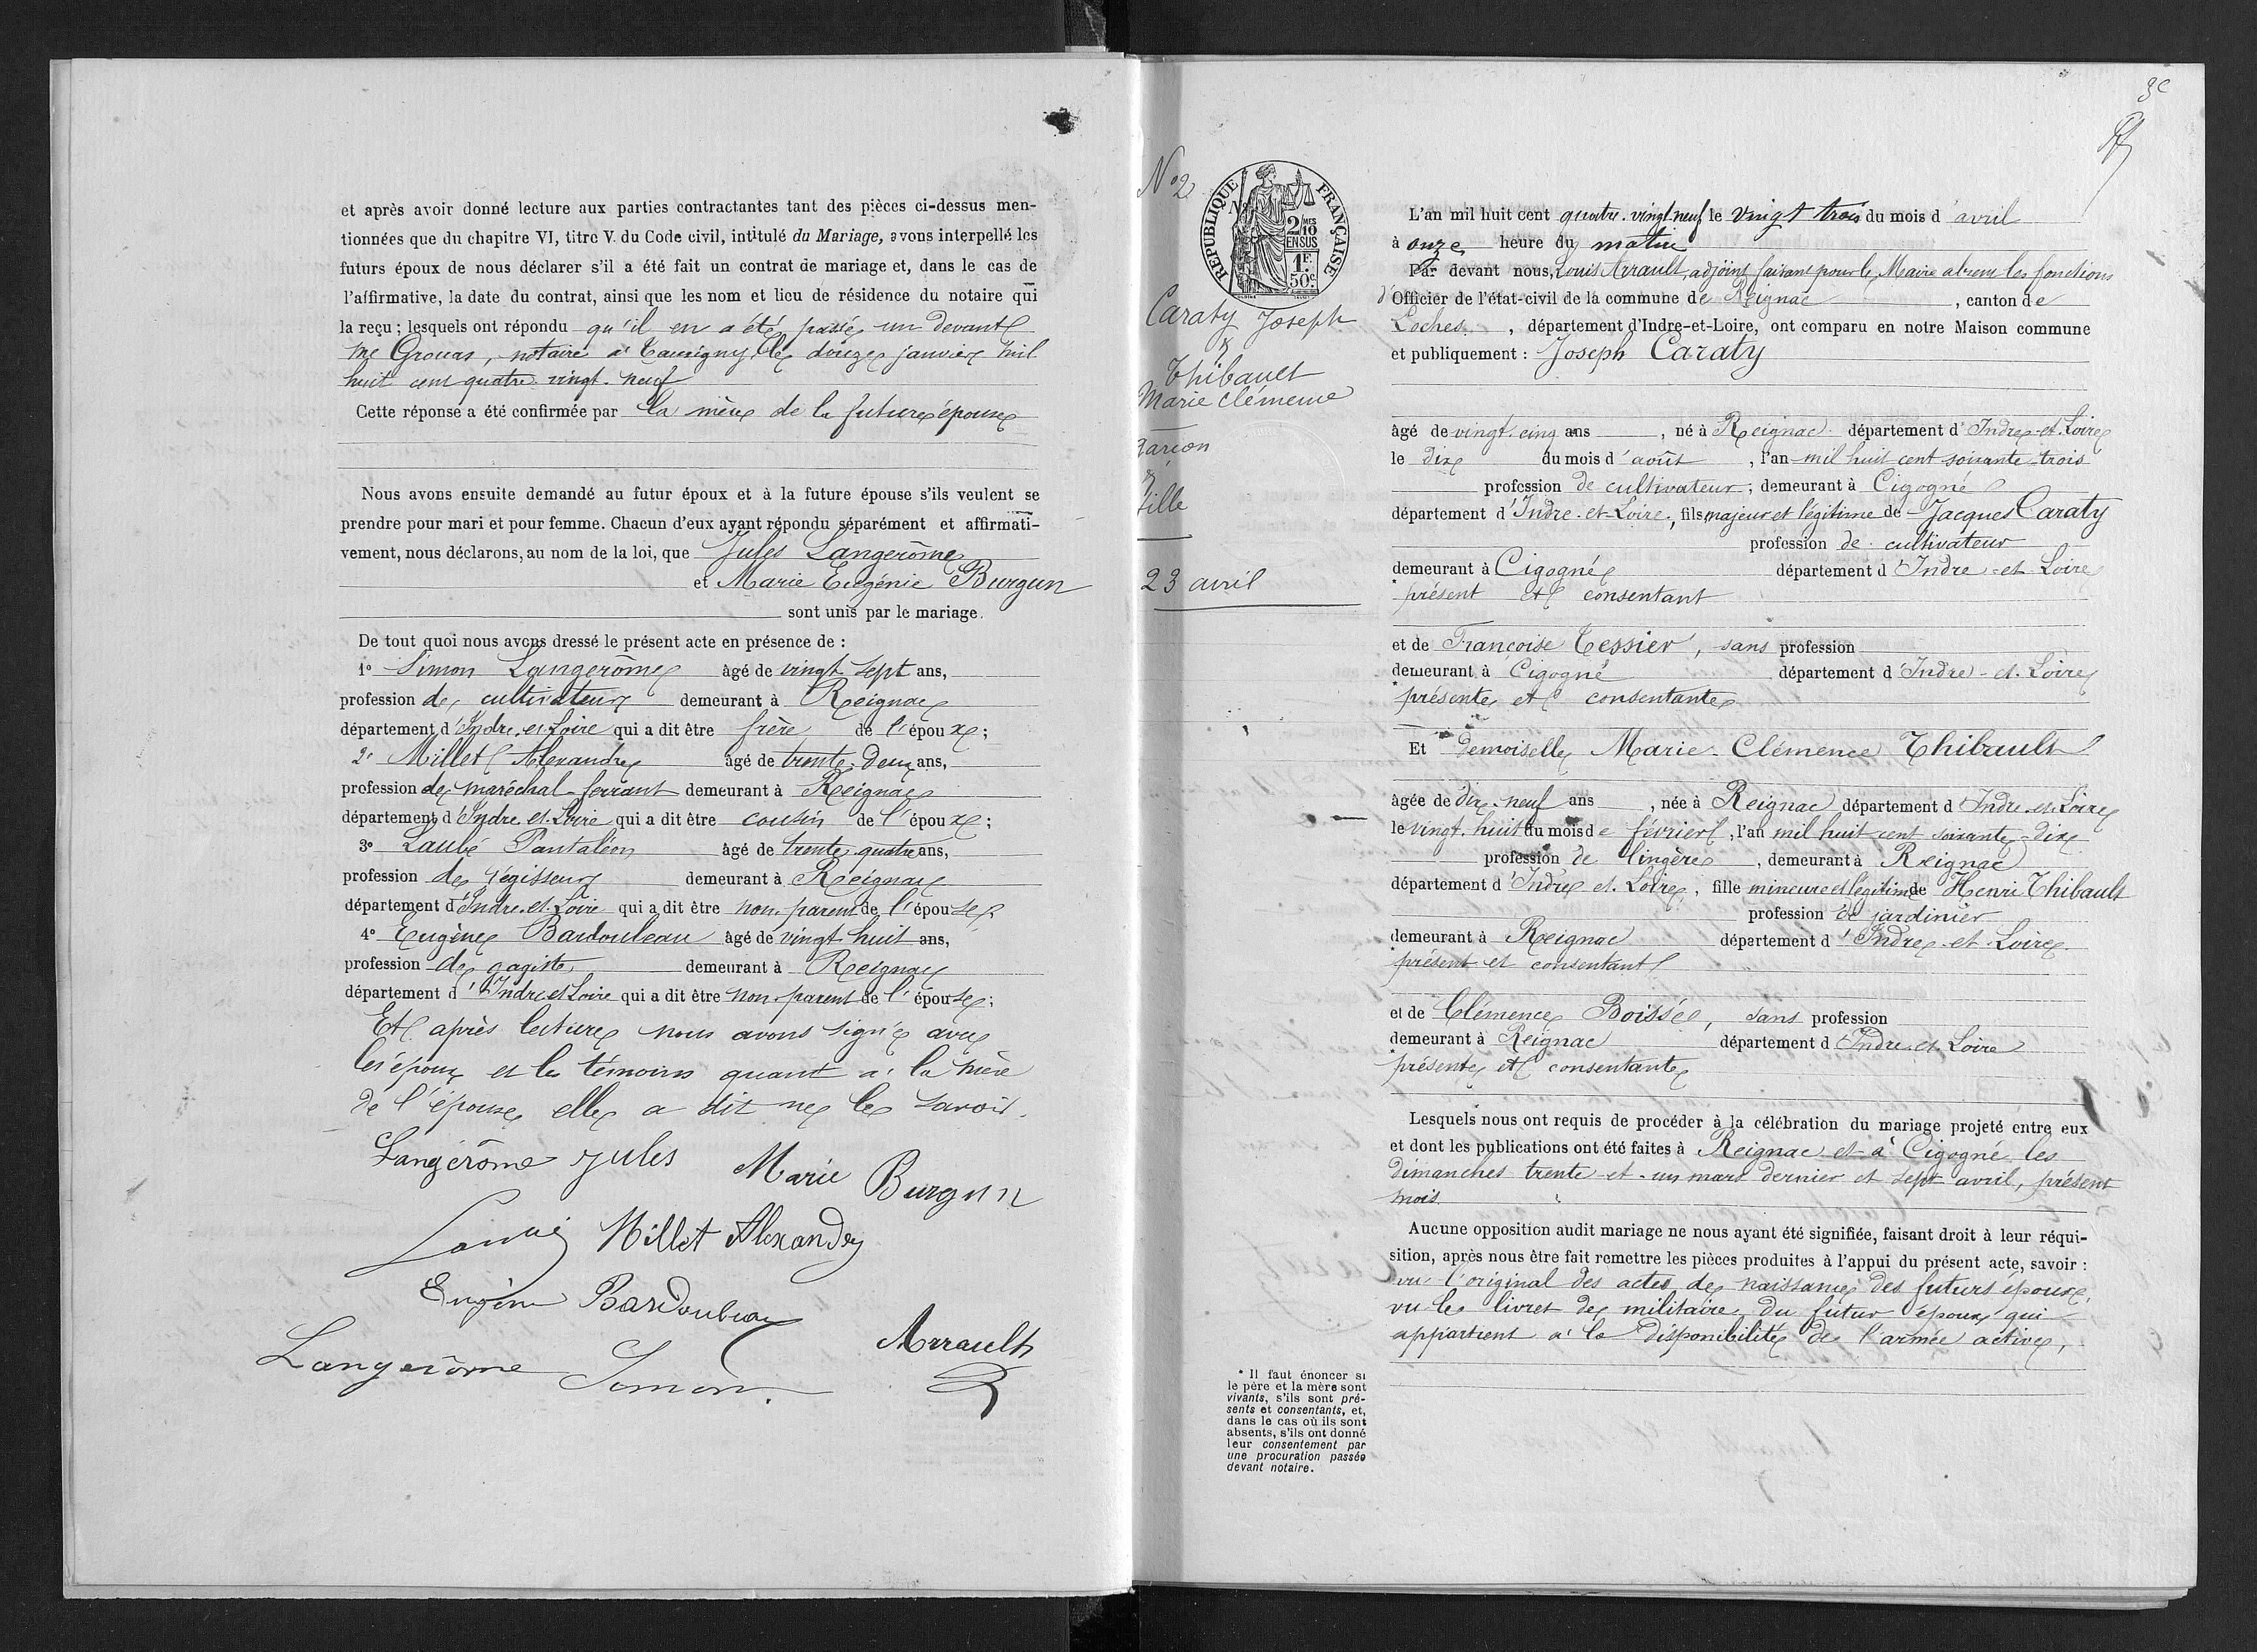 et après avoir donné lecture aux parties contractantes tant des pièces ci-dessus men-
tionnées que du chapitre VI, titre V. du Code civil, intitulé du Mariage, avons interpellé les
futurs époux de nous déclarer s'il a été fait un contrat de mariage et, dans le cas de
l'affirmative, la date du contrat, ainsi que les nom et lieu de résidence du notaire qui
la reçu ; lesquels ont répondu qu'il en a été passé un devant
Me Grouas, notaire à Tauxigny, le douze janvier mil
huit cent quatre-vingt-neuf
Cette réponse a été confirmée par la mère de la future épouse
Nous avons ensuite demandé au futur époux et à la future épouse s'ils veulent se
prendre pour mari et pour femme. Chacun d'eux ayant répondu séparément et affirmati-
vement, nous déclarons, au nom de la loi, que Jules Langerôme
et Marie Eugénie Burgun
sont unis par le mariage.
De tout quoi nous avons dressé le présent acte en présence de :
1° Simon Langerôme âgé de vingt sept ans,
profession de cultivateur demeurant à Reignac
département d'Indre-et-Loire qui a dit être frère de l'époux ;
2° Millet Alexandre âgé de trente-deux ans,
profession de maréchal-ferrant demeurant à Reignac
département d'Indre-et-Loire qui a dit être cousin de l'époux ;
3° Laubé Pantaléon âgé de trente quatre ans,
profession de régisseur demeurant à Reignac
département d'Indre-et-Loire qui a dit être non-parent de l'épouse
4° Eugène Bardouleau âgé de vingt huit ans,
profession de gagiste demeurant à Reignac
département d'Indre et Loire qui a dit être non-parent de l'épouse ;
Et après lecture nous avons signé avec
les époux et les témoins quant à la mère
de l'épouse, elle a dit ne le savoir.
Langerôme Jules Marie Burgun
Millet Alexandre
Eugène Bardouleau
Arrault
Langerôme Simon.
N° 2
RÉPUBLIQUE FRANÇAISE
2/10 MES
EN SUS
1F.
50c.
Caraty Joseph
&
Thibault
Marie Clémence
Garçon
&
Fille
23 avril
L'an mil huit cent quatre-vingt neuf le vingt trois du mois d'avril
à onze heure du matin
Par devant nous, Louis Arrault, adjoint faisant pour le Maire absent les fonctions
d'Officier de l'état-civil de la commune de Reignac, canton de
Loches, département d'Indre-et-Loire, ont comparu en notre Maison commune
et publiquement : Joseph Caraty
âgé de vingt-cinq ans, né à Reignac département d'Indre-et-Loire
le dix du mois d'août, l'an mil huit cent soixante-trois
profession de cultivateur ; demeurant à Cigogné
département d'Indre-et-Loire, fils majeur et légitime de Jacques Caraty
profession de cultivateur
demeurant à Cigogné département d'Indre-et-Loire
* présent et consentant
et de Françoise Tessier, sans profession
demeurant à Cigogné département d'Indre-et-Loire
* présente et consentante
Et demoiselle Marie-Clémence Thibault
âgée de dix-neuf ans, née à Reignac département d'Indre-et-Loire
le vingt-huit du mois de février, l'an mil huit cent soixante-dix
profession de lingère, demeurant à Reignac
département d'Indre et-Loire, fille mineure et légitime de Henri Thibault
profession de jardinier
demeurant à Reignac département d'Indre-et-Loire
* présent et consentant
et de Clémence Boissée, sans profession
demeurant à Reignac département d'Indre-et-Loire
* présente et consentante
Lesquels nous ont requis de procéder à la célébration du mariage projeté entre eux
et dont les publications ont été faites à Reignac et à Cigogné les
dimanches trente-et-un mars dernier et sept avril, présent
mois.
Aucune opposition audit mariage ne nous ayant été signifiée, faisant droit à leur réqui-
sition, après nous être fait remettre les pièces produites à l'appui du présent acte, savoir :
vu l'original des actes de naissance des futurs époux,
vu le livret de militaire du futur époux qui
appartient à la disponibilité de l'armée active,
* Il faut énoncer si
le père et la mère sont
vivants, s'ils sont pré-
sents et consentants, et,
dans le cas où ils sont
absents, s'ils ont donné
leur consentement par
une procuration passée
devant notaire.